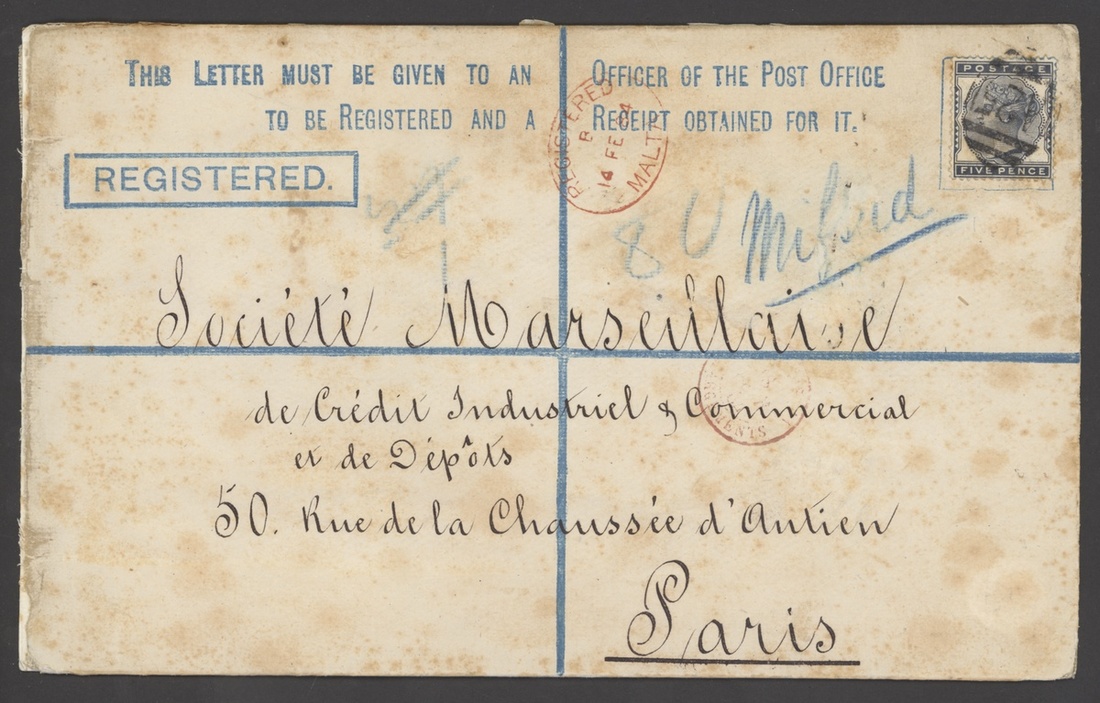 THIS LETTER MUST BE GIVEN TO AN OFFICER OF THE POST OFFICE
TO BE REGISTERED AND A RECEIPT OBTAINED FOR IT.
REGISTERED.
REGISTERED
B
14 FE 84
MALTA
POSTAGE
FIVE PENCE
8 U Milford
Société Marseillaise
CENTS
de Crédit Industriel & Commercial
et de Dépôts
50. Rue de la Chaussée d'Antien
Paris